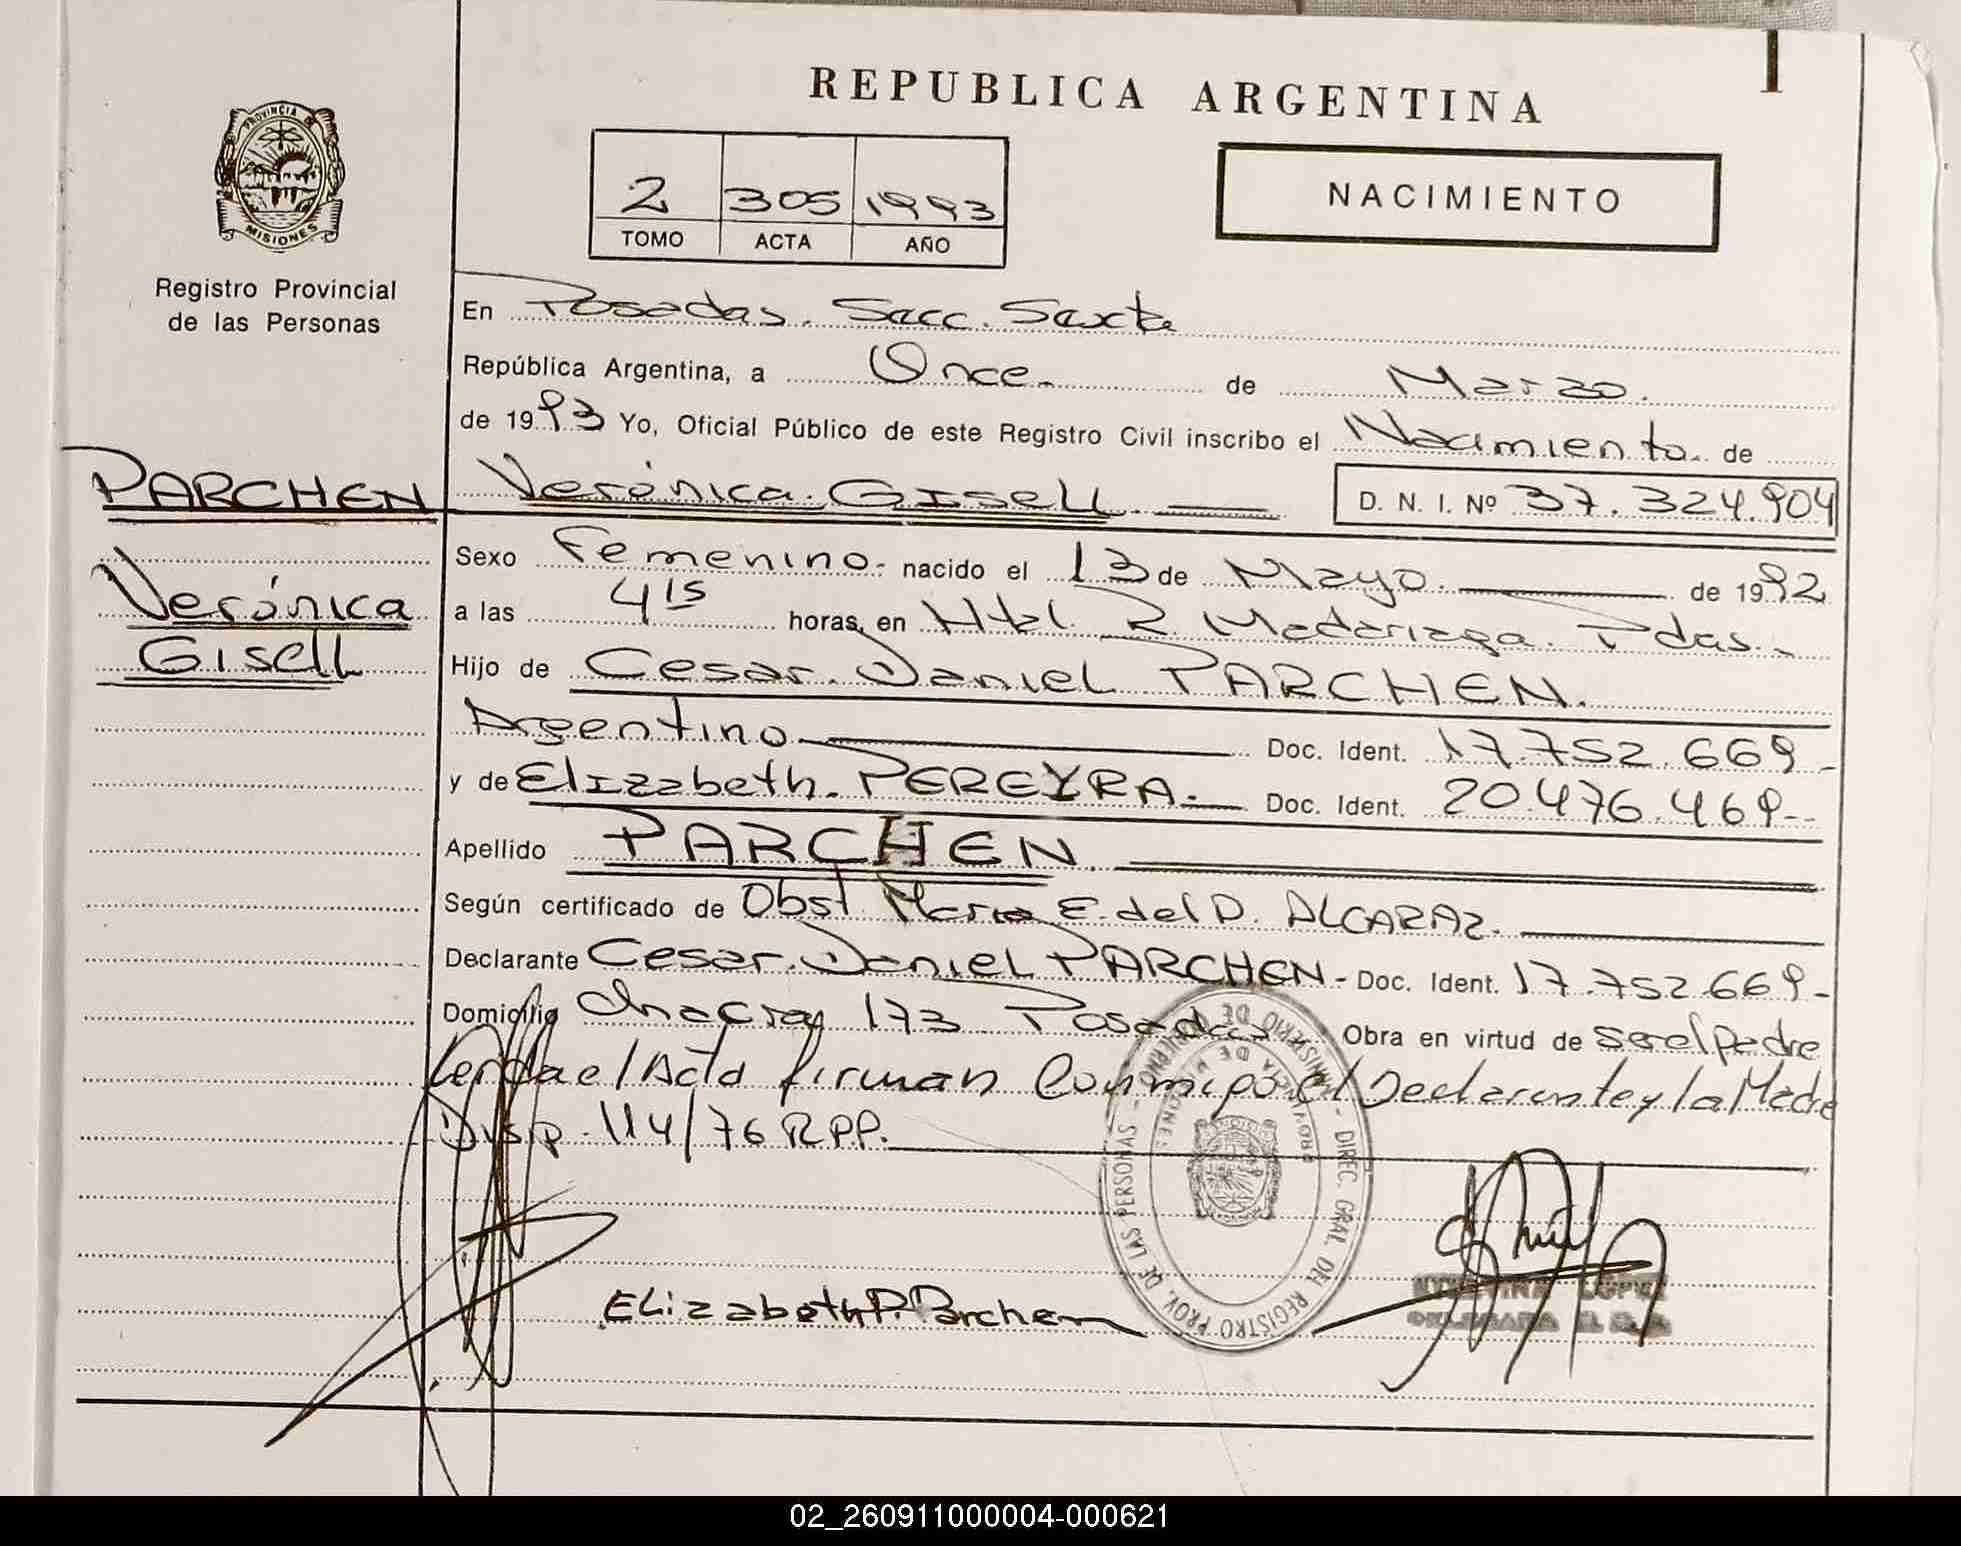 REPUBLICA ARGENTINA
PROVINCIA DE
MISIONES
Registro Provincial
de las Personas
2 305 1993
TOMO ACTA AÑO
NACIMIENTO
En Posadas. Secc. Sexta
República Argentina, a Once. de Marzo.
de 1993 Yo, Oficial Público de este Registro Civil inscribo el Nacimiento. de
PARCHEN Verónica. GISELL. D. N. I. Nº 37.324.904
Sexo Femenino. nacido el 13 de Mayo. de 1992
Verónica a las 4 15 horas, en Htal. R Madariaga. Pdas.
GISELL Hijo de Cesar. Daniel PARCHEN.
Argentino Doc. Ident. 17.752.669-
y de Elizabeth. PEREYRA. Doc. Ident. 20.476.469--
Apellido PARCHEN.
Según certificado de Obst Maria E. del D. ALCARAZ.
Declarante Cesar. Daniel PARCHEN- Doc. Ident. 17.752.669-
Domicilio Chacray 173 Posadas Obra en virtud de Ser el padre
Leyda el Acta firman Conmigo el Declarante y la Madre
Disp. 114/76 RPP.
MINISTERIO DE GOBIERNO - DIREC. GRAL. DEL REGISTRO PROV. DE LAS PERSONAS
Elizabeth P. Parchen
LOPEZ
DELEGADA
02_260911000004-000621